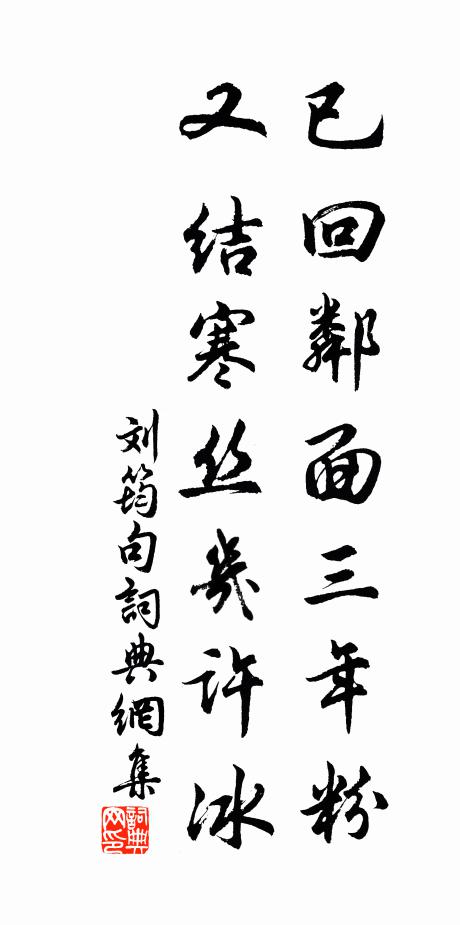 已回鄰面三年粉
又结寒丝幾许冰
刘筠句詞典網集
詞典
网印